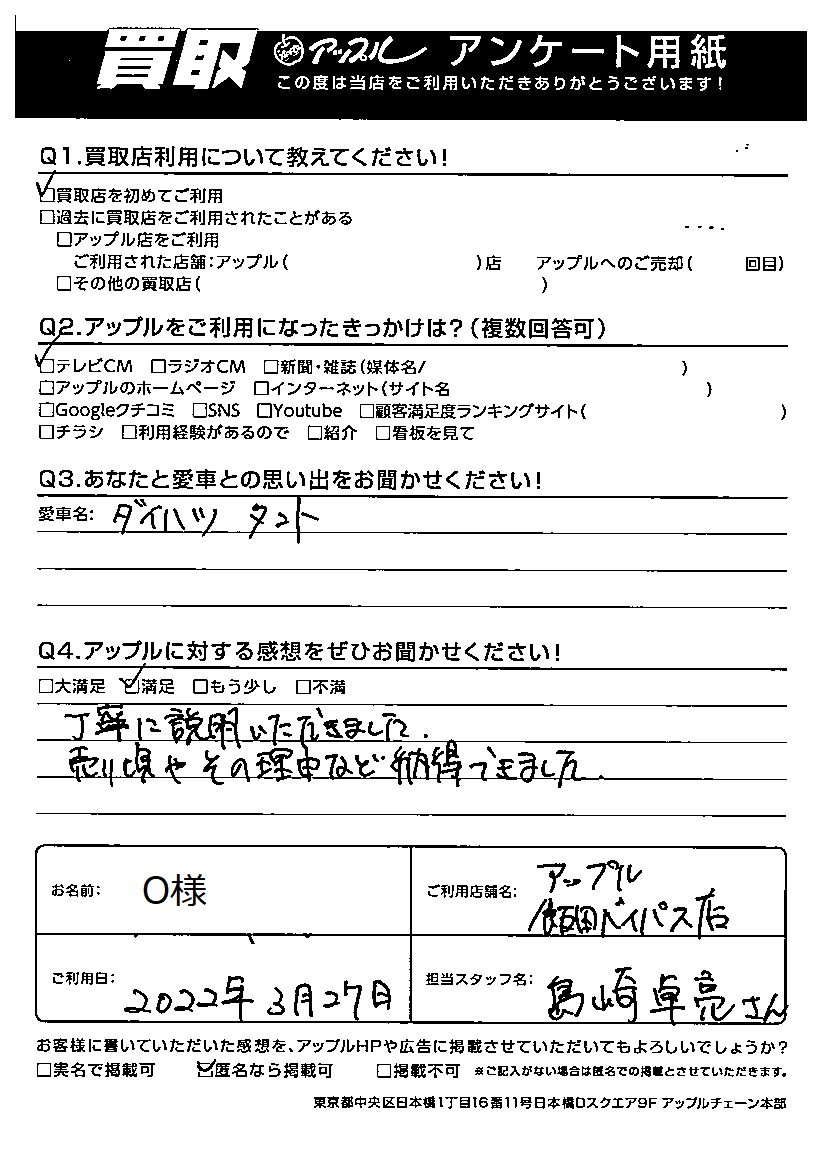 買取 アップル アンケート用紙
この度は当店をご利用いただきありがとうございます!
Q1.買取店利用について教えてください!
☑買取店を初めてご利用
□過去に買取店をご利用されたことがある
□アップル店をご利用
ご利用された店舗:アップル( )店 アップルへのご売却( 回目)
□その他の買取店( )
Q2.アップルをご利用になったきっかけは?(複数回答可)
☑テレビCM □ラジオCM □新聞・雑誌(媒体名/ )
□アップルのホームページ □インターネット(サイト名 )
□Googleクチコミ □SNS □Youtube □顧客満足度ランキングサイト( )
□チラシ □利用経験があるので □紹介 □看板を見て
Q3.あなたと愛車との思い出をお聞かせください!
愛車名: ダイハツ タント
Q4.アップルに対する感想をぜひお聞かせください!
□大満足 ☑満足 □もう少し □不満
丁寧に説明いただきました.
売り頃やその理由など納得できました.
お名前: O様
ご利用店舗名: アップル
飯田バイパス店
ご利用日: 2022年3月27日
担当スタッフ名: 島崎卓亮さん
お客様に書いていただいた感想を、アップルHPや広告に掲載させていただいてもよろしいでしょうか?
□実名で掲載可 ☑匿名なら掲載可 □掲載不可 ※ご記入がない場合は匿名での掲載とさせていただきます。
東京都中央区日本橋1丁目16番11号日本橋Dスクエア9F アップルチェーン本部